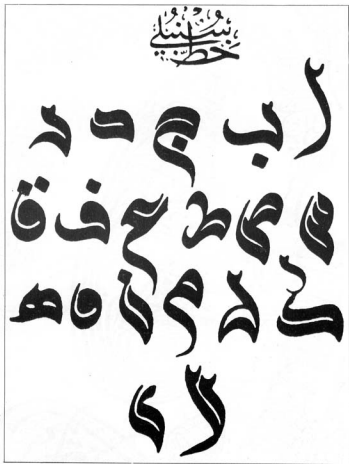 خط سنبلي
ا ب ج د ر
س ص ط ع ف ق
ك ل م ن و ه
لا ي